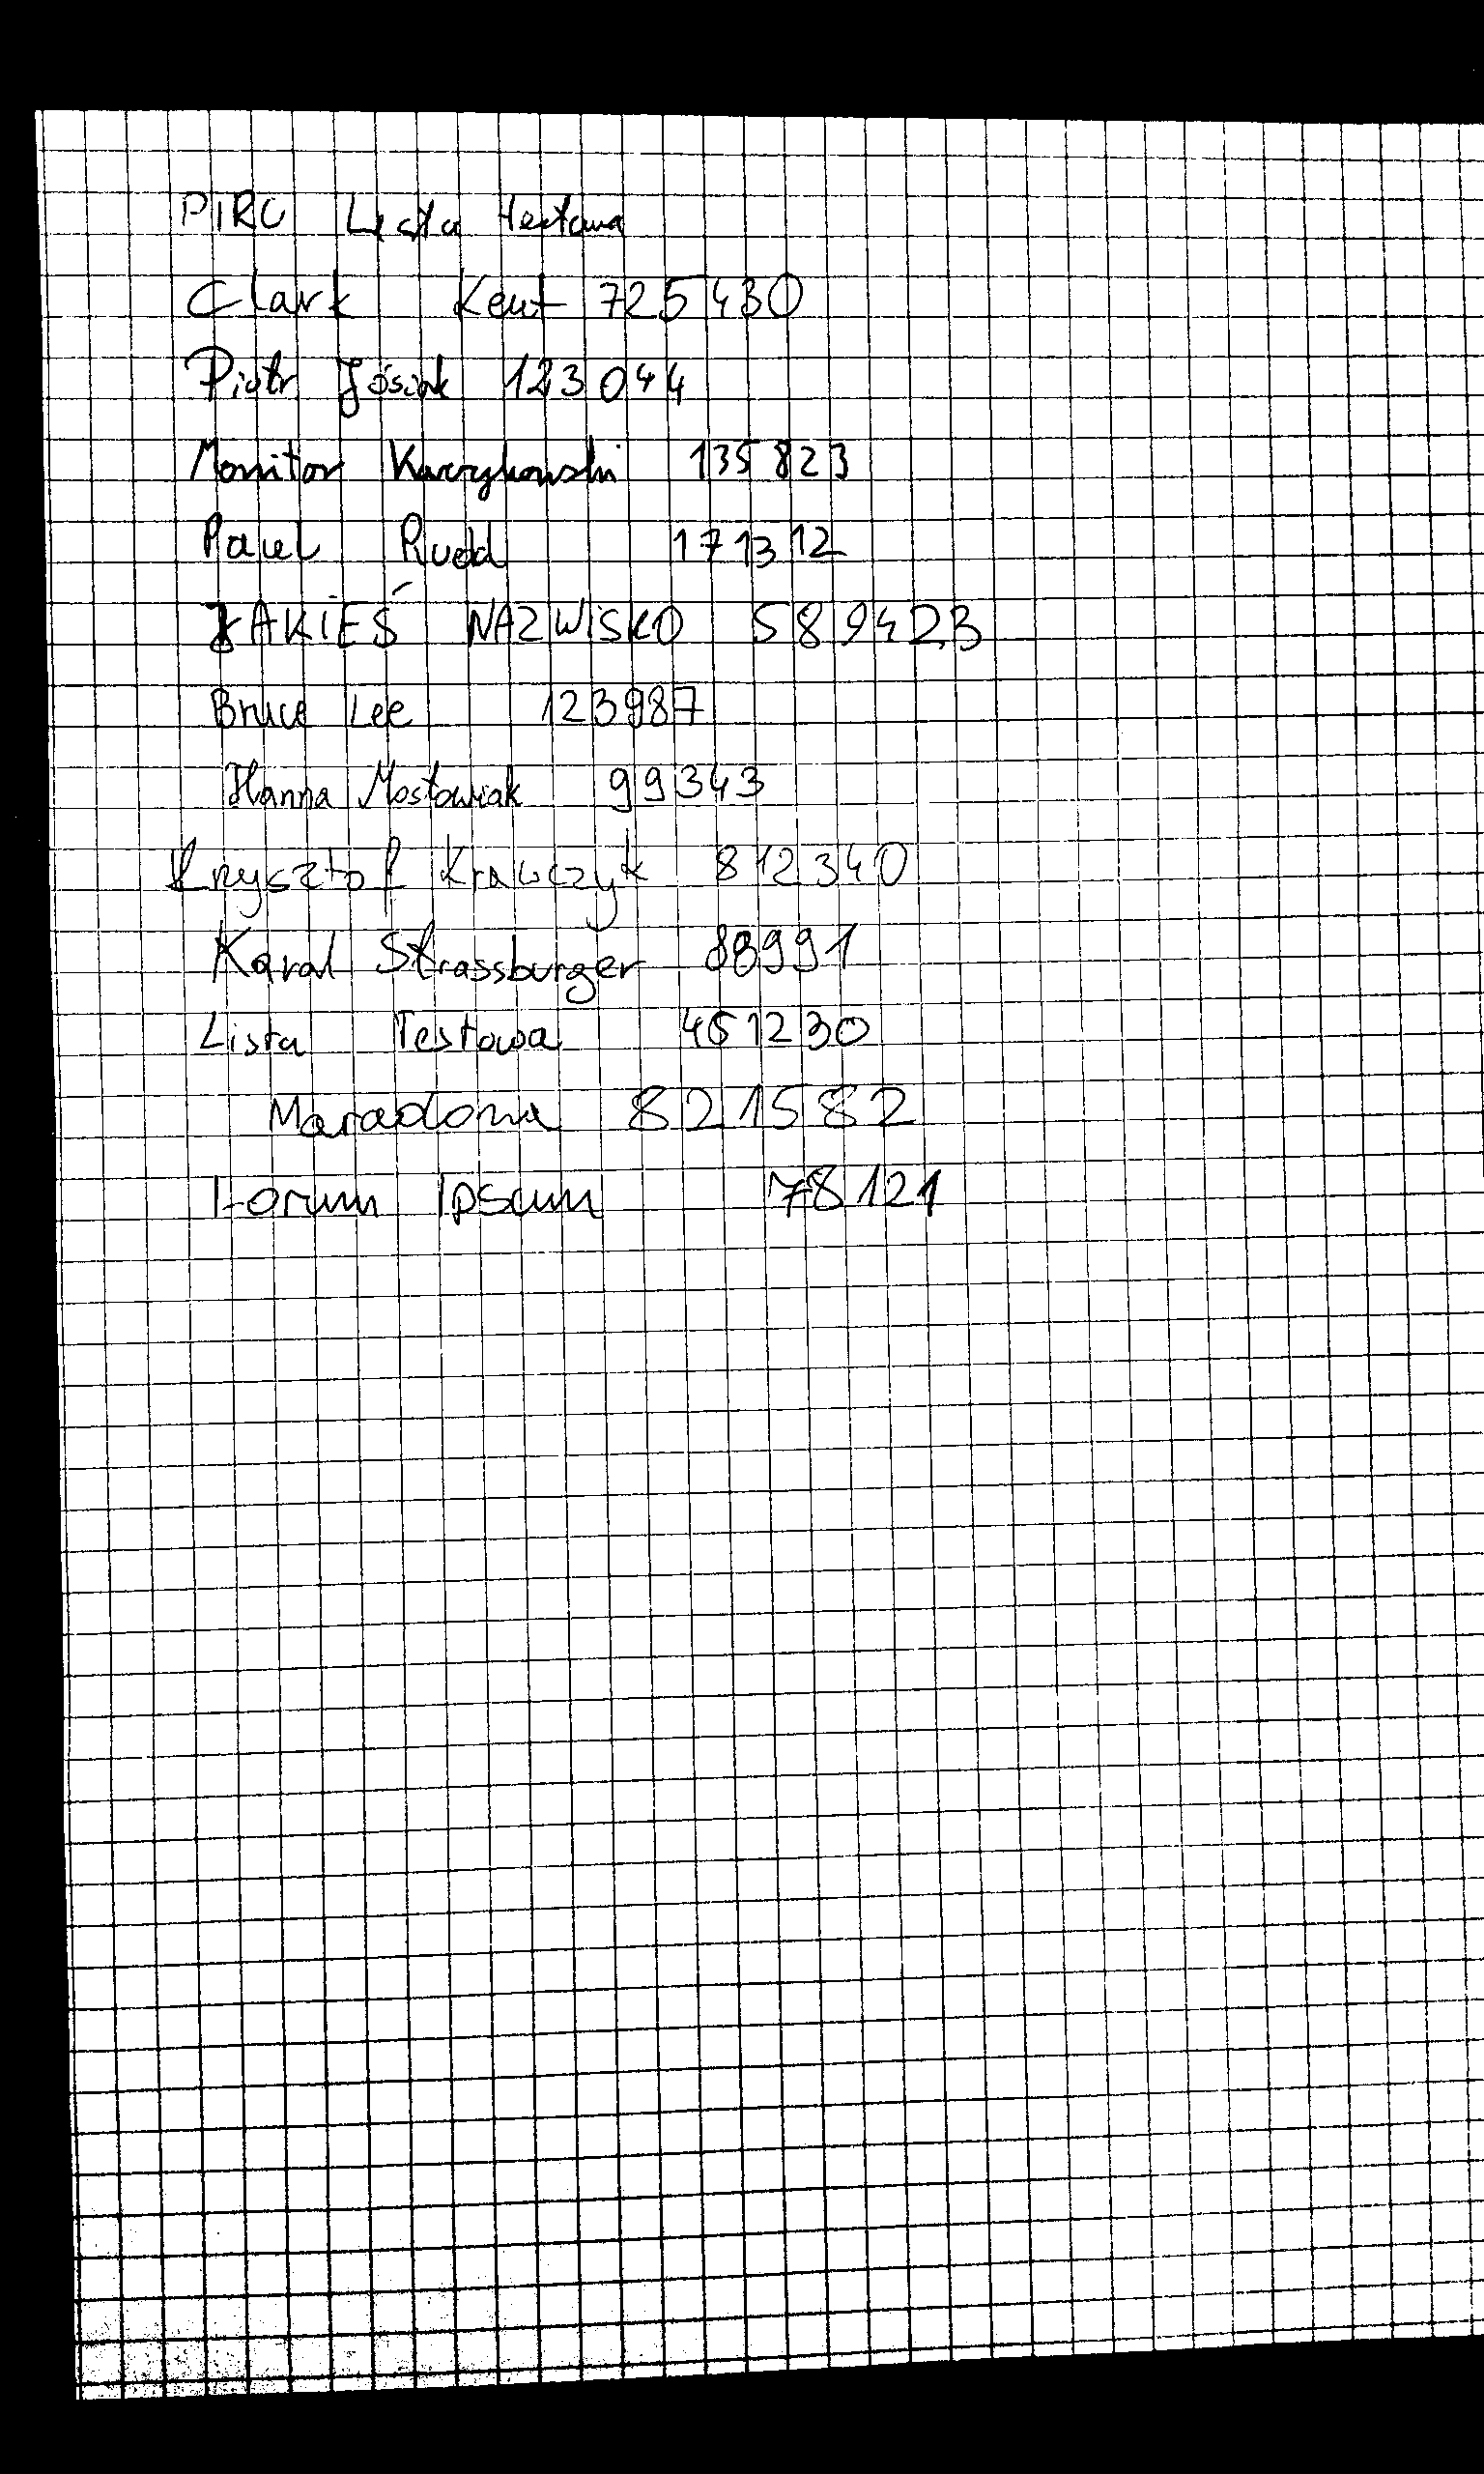 PIRO Lista testowa
Clark Kent 725430
Piotr Jósiak 123044
Monitor Kwczykowski 135823
Paweł Rudd 171312
JAKIEŚ NAZWISKO 589423
Bruce Lee 123987
Hanna Mostowiak 99343
Krzysztof Krawczyk 812340
Karol Strassburger 88991
Lista Testowa 461230
Maradona 821582
Lorum Ipsum 78121